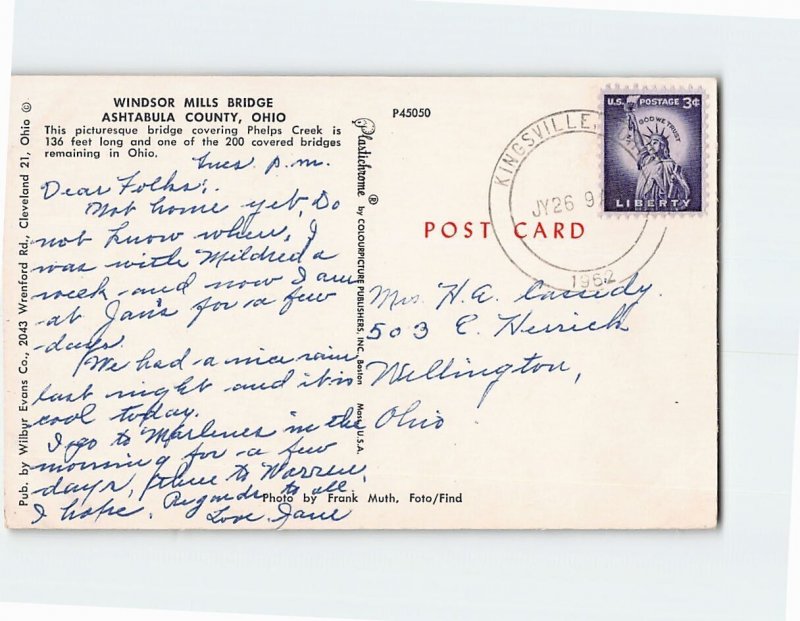 WINDSOR MILLS BRIDGE
ASHTABULA COUNTY, OHIO
This picturesque bridge covering Phelps Creek is
136 feet long and one of the 200 covered bridges
remaining in Ohio.
Tues. p.m.
Dear Folks:
Not home yet, Do
not know when, I
was with Mildred a
week and now I am
at Jan's for a few
days.
We had a nice rain
last night and it is
cool today.
I go to Marlenes in the
morning for a few
days, then to Warren,
I hope. Regards to all
Love, Jane
Photo by Frank Muth, Foto/Find
Pub. by Wilbur Evans Co., 2043 Wrenford Rd., Cleveland 21, Ohio ©
Plastichrome ® by COLOURPICTURE PUBLISHERS, INC., Boston Mass. U.S.A.
P45050
POST CARD
KINGSVILLE
JY26 9
1962
U.S. POSTAGE 3¢
IN GOD WE TRUST
LIBERTY
Mrs. H. A. Cassedy.
503 E. Herrick
Wellington,
Ohio